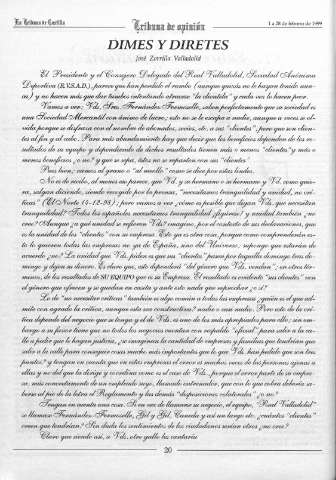 La Tribuna de Castilla
Tribuna de opinión
1 a 28 de febrero de 1999
DIMES Y DIRETES
José Zorrilla Valladolid
El Presidente y el Consejero Delegado del Real Valladolid, Sociedad Anónima
Deportiva (R.V.S.A.D.), parece que han perdido el rumbo (aunque quizás no lo hayan tenido nun-
ca) y no hacen más que dar tumbos intentando atraerse "la clientela" y cada vez lo hacen peor.
Vamos a ver: Vds., Sres. Fernández Francesello, saben perfectamente que su sociedad es
una Sociedad Mercantil con ánimo de lucro; esto no se le escapa a nadie, aunque a veces se ol-
vida porque se disfrazan con el nombre de abonados, socios, etc. a sus "clientes" pero que son clien-
tes al fin y al cabo. Para más abundamiento hay que decir que los beneficios dependen de los re-
sultados de su equipo y dependiendo de dichos resultados tienen más o menos "clientes" y más o
menos beneficios ¿o no? y que yo sepa, éstos no se reparten con sus "clientes".
Pues bien; vamos al grano o "al meollo" como se dice por estas tierras.
No es de recibo, al menos me parece, que Vd. y su hermano o su hermano y Vd. como quie-
ra, salgan diciendo, siendo recogido por la prensa, "necesitamos tranquilidad y unidad, no crí-
ticas" (El Norte 14-12-98); pero vamos a ver ¿cómo es posible que digan Vds. que necesitan
tranquilidad? Todos los españoles necesitamos tranquilidad ¡figúrese! y unidad también ¿no
cree? Aunque ¿a qué unidad se refieren Vds? imagino, por el contexto de sus declaraciones, que
a la unidad de los "clientes" con su empresa. Esto ya es otra cosa, porque como comprenderán es-
to lo quieren todas las empresas no ya de España, sino del Universo, supongo que estarán de
acuerdo ¿no? La unidad que Vds. piden es que sus "clientes" pasen por taquilla domingo tras do-
mingo y dejen su dinero. Es claro que, esto dependerá "del género que Vds. vendan"; en otros tér-
minos, de los resultados de SU EQUIPO que es su Empresa. El resultado es evidente "sus clientes" ven
el género que ofrecen y se quedan en casita y ante esto nada que reprochar ¿o sí?
Lo de "no necesitar críticas" también es algo común a todas las empresas ¿quién es el que ad-
mite con agrado la crítica, aunque ésta sea constructiva? nadie o casi nadie. Pero esto de la crí-
tica depende del negocio que se tenga y el de Vds. es uno de los más apropiados para ello; sin em-
bargo a su favor tiene que no todos los negocios cuentan con respaldo "oficial" para salir a la ca-
lle a pedir que lo hagan justicia, ¿se imaginan la cantidad de empresas y familias que tendrían que
salir a la calle para conseguir cosas mucho más importantes que lo que Vds. han pedido que son tres
puntos? y tengan en cuenta que en estas empresas el cerco a muchas veces de las personas ajenas a
ellas y no del que la dirige y se critica como es el caso de Vds., porque el error parte de su empre-
sa, más concretamente de un empleado suyo, llamado entrenador, que con lo que cobra debería sa-
berse al pie de la letra el Reglamento y las demás "disposiciones relativas" ¿o no?
Tengan en cuenta una cosa. Si en vez de llamarse su negocio, el equipo, "Real Valladolid"
se llamase Fernández-Francesello, Gil y Gil, Caneda y así un largo etc. ¿cuántos "clientes"
creen que tendrían? Sin duda los sentimientos de los ciudadanos serían otros ¿no cree?
Claro que siendo así, a Vds. otro gallo les cantaría.
20